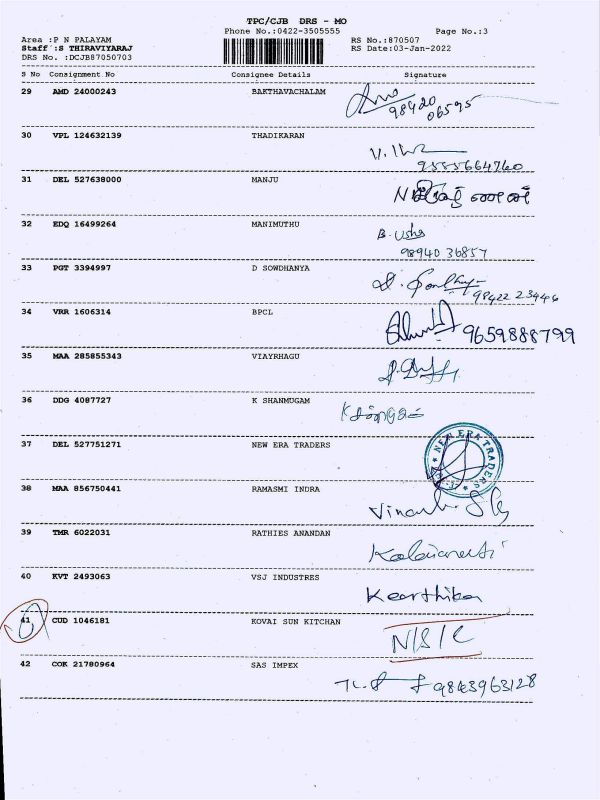 TPC/CJB DRS - MO
Phone No.:0422-3505555 Page No.:3
Area :P N PALAYAM RS No.:870507
Staff :S THIRAVIYARAJ RS Date:03-Jan-2022
DRS No. :DCJB87050703
S No Consignment No Consignee Details Signature
29 AMD 24000243 BAKTHAVACHALAM
98420
06595
30 VPL 124632139 THADIKARAN
9555664760
31 DEL 527638000 MANJU
32 EDQ 16499264 MANIMUTHU B. Usha
98940 36857
33 PGT 3394997 D SOWDHANYA
98422 23446
34 VRR 1606314 BPCL 9659888799
35 MAA 285855343 VIAYRHAGU
36 DDG 4087727 K SHANMUGAM
37 DEL 527751271 NEW ERA TRADERS NEW ERA TRADERS
38 MAA 856750441 RAMASMI INDRA
39 TMR 6022031 RATHIES ANANDAN
40 KVT 2493063 VSJ INDUSTRES Kearthika
41 CUD 1046181 KOVAI SUN KITCHAN N/S/L
42 COK 21780964 SAS IMPEX 9843963128